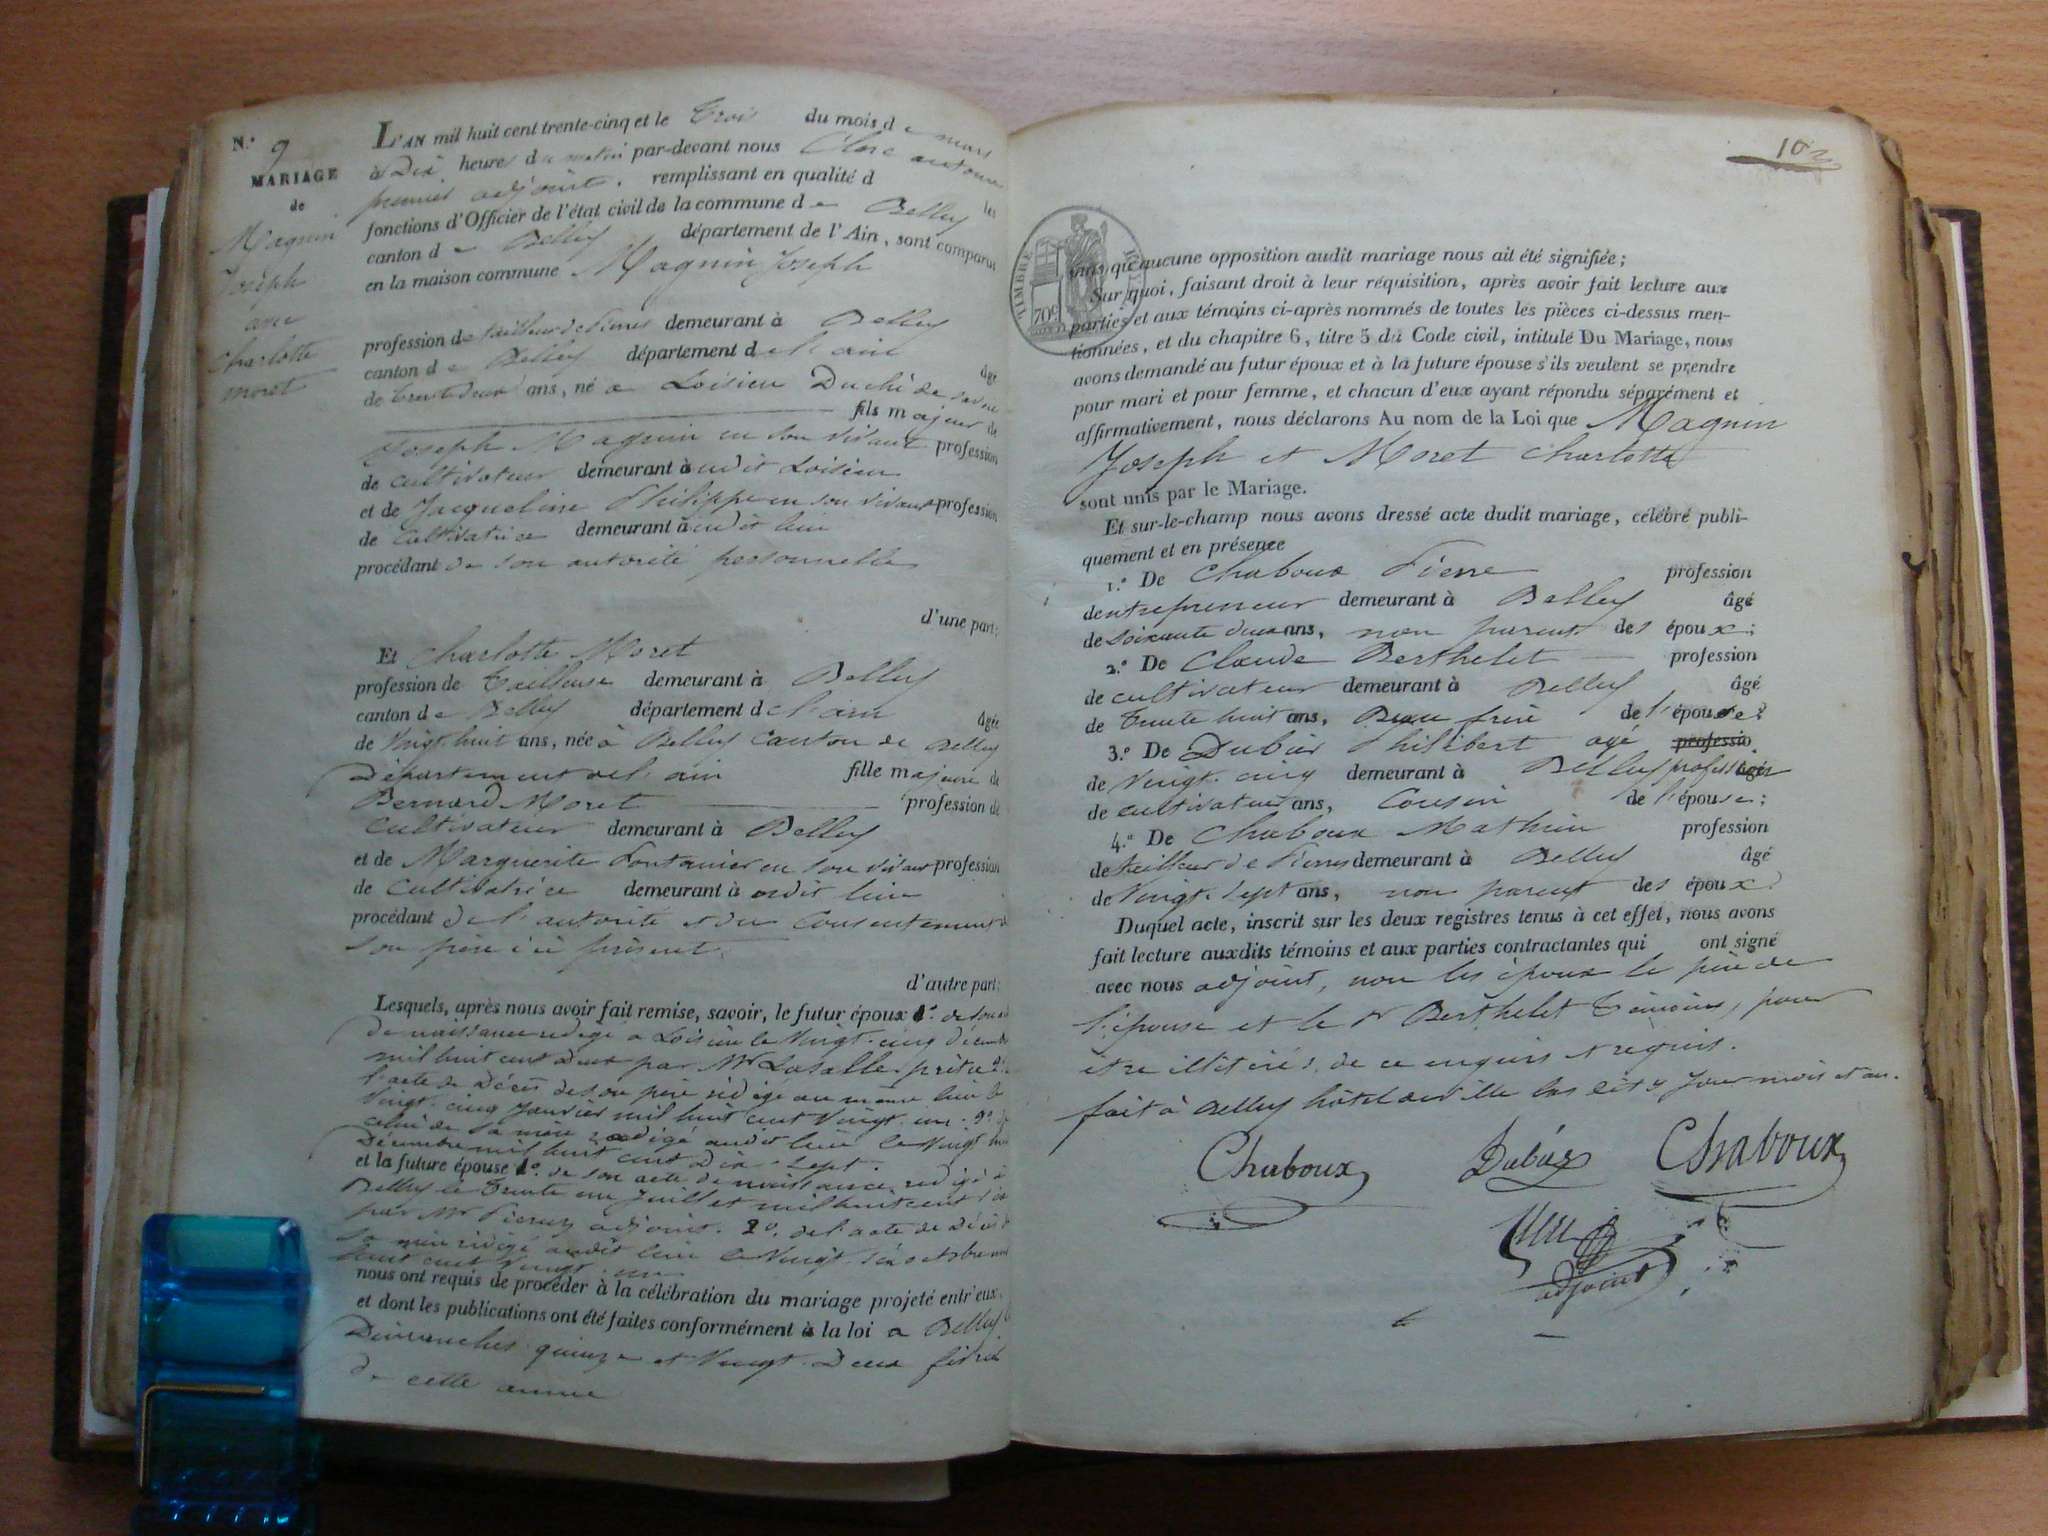 N.° 9
MARIAGE
de
Magnin
Joseph
avec
Charlotte
moret
L'AN mil huit cent trente-cinq et le Trois du mois de mars
à Dix heures du matin par-devant nous Clerc antoine
premier adjoint. remplissant en qualité d les
fonctions d'Officier de l'état civil de la commune de Belley
canton de Belley département de l'Ain, sont comparus
en la maison commune Magnin Joseph
profession de tailleur de Pierres demeurant à Belley
canton de Belley département de l'ain âgé
de trente deux ans, né a Loisieu Duché de Savoie
fils majeur de
Joseph Magnin en son vivant profession
de cultivateur demeurant à udit Loisieu
et de Jacqueline Philippe en son vivant profession
de cultivatrice demeurant à udit lieu
procédant de son autorité personnelle
d'une part;
Et Charlotte Moret
profession de Tailleuse demeurant à Belley
canton de Belley département de l'ain âgée
de Vingt huit ans, née à Belley Canton de Belley
Département de l'ain fille majeure de
Bernard Moret profession de
Cultivateur demeurant à Belley
et de Marguerite Fontanier en son vivant profession
de Cultivatrice demeurant à udit lieu
procédant de l'autorité et du Consentement de
son père ici présent.
d'autre part;
Lesquels, après nous avoir fait remise, savoir, le futur époux 1.° de son
de naissance redigé a Loisieu le Vingt-cinq décembre
mil huit cent deux par Mr Lasalle prêtre 2°
l'acte de Décès de son père redigé au même lieu le
Vingt-cinq Janvier mil huit cent Vingt-un. 3° de
celui de sa mère redigé audit lieu le Vingt
Décembre mil huit cent Dix-Sept.
et la future épouse 1.° de son acte de naissance redigé à
Belley le trente un Juillet mil huit cent
par Mr adjoint. 2°. de l'acte de Décès de
sa mère redigé audit lieu le Vingt octobre mil
huit cent Vingt-un
nous ont requis de procéder à la célébration du mariage projeté entr'eux,
et dont les publications ont été faites conformément à la loi a Belley
Dimanches quinze et Vingt-Deux février
de cette année
10
TIMBRE
70c
sans qu'aucune opposition audit mariage nous ait été signifiée;
Sur quoi, faisant droit à leur réquisition, après avoir fait lecture aux
parties et aux témoins ci-après nommés de toutes les pièces ci-dessus men-
tionnées, et du chapitre 6, titre 5 du Code civil, intitulé Du Mariage, nous
avons demandé au futur époux et à la future épouse s'ils veulent se prendre
pour mari et pour femme, et chacun d'eux ayant répondu séparément et
affirmativement, nous déclarons Au nom de la Loi que Magnin
Joseph et Moret Charlotte
sont unis par le Mariage.
Et sur-le-champ nous avons dressé acte dudit mariage, célébré publi-
quement et en présence
1.° De Chaboux Pierre profession
dentrepreneur demeurant à Belley âgé
de soixante deux ans, non parent des époux;
2.° De Claude Berthelet profession
de cultivateur demeurant à Belley âgé
de Trente huit ans, Beau frère de l'épouse;
3.° De Dubier Philibert agé profession
de Vingt-cinq demeurant à Belley profession
de cultivateur ans, Cousin de l'épouse;
4.° De Chaboux Mathieu profession
de tailleur de Pierres demeurant à Belley âgé
de Vingt-Sept ans, non parent des époux
Duquel acte, inscrit sur les deux registres tenus à cet effet, nous avons
fait lecture auxdits témoins et aux parties contractantes qui ont signé
avec nous adjoint, non les époux le père de
l'épouse et le Sr Berthelet Témoins, pour
être illitérés, de ce enquis et requis.
fait à Belley hôtel de ville les dits Jour mois et an.
Chaboux Chaboux
adjoint